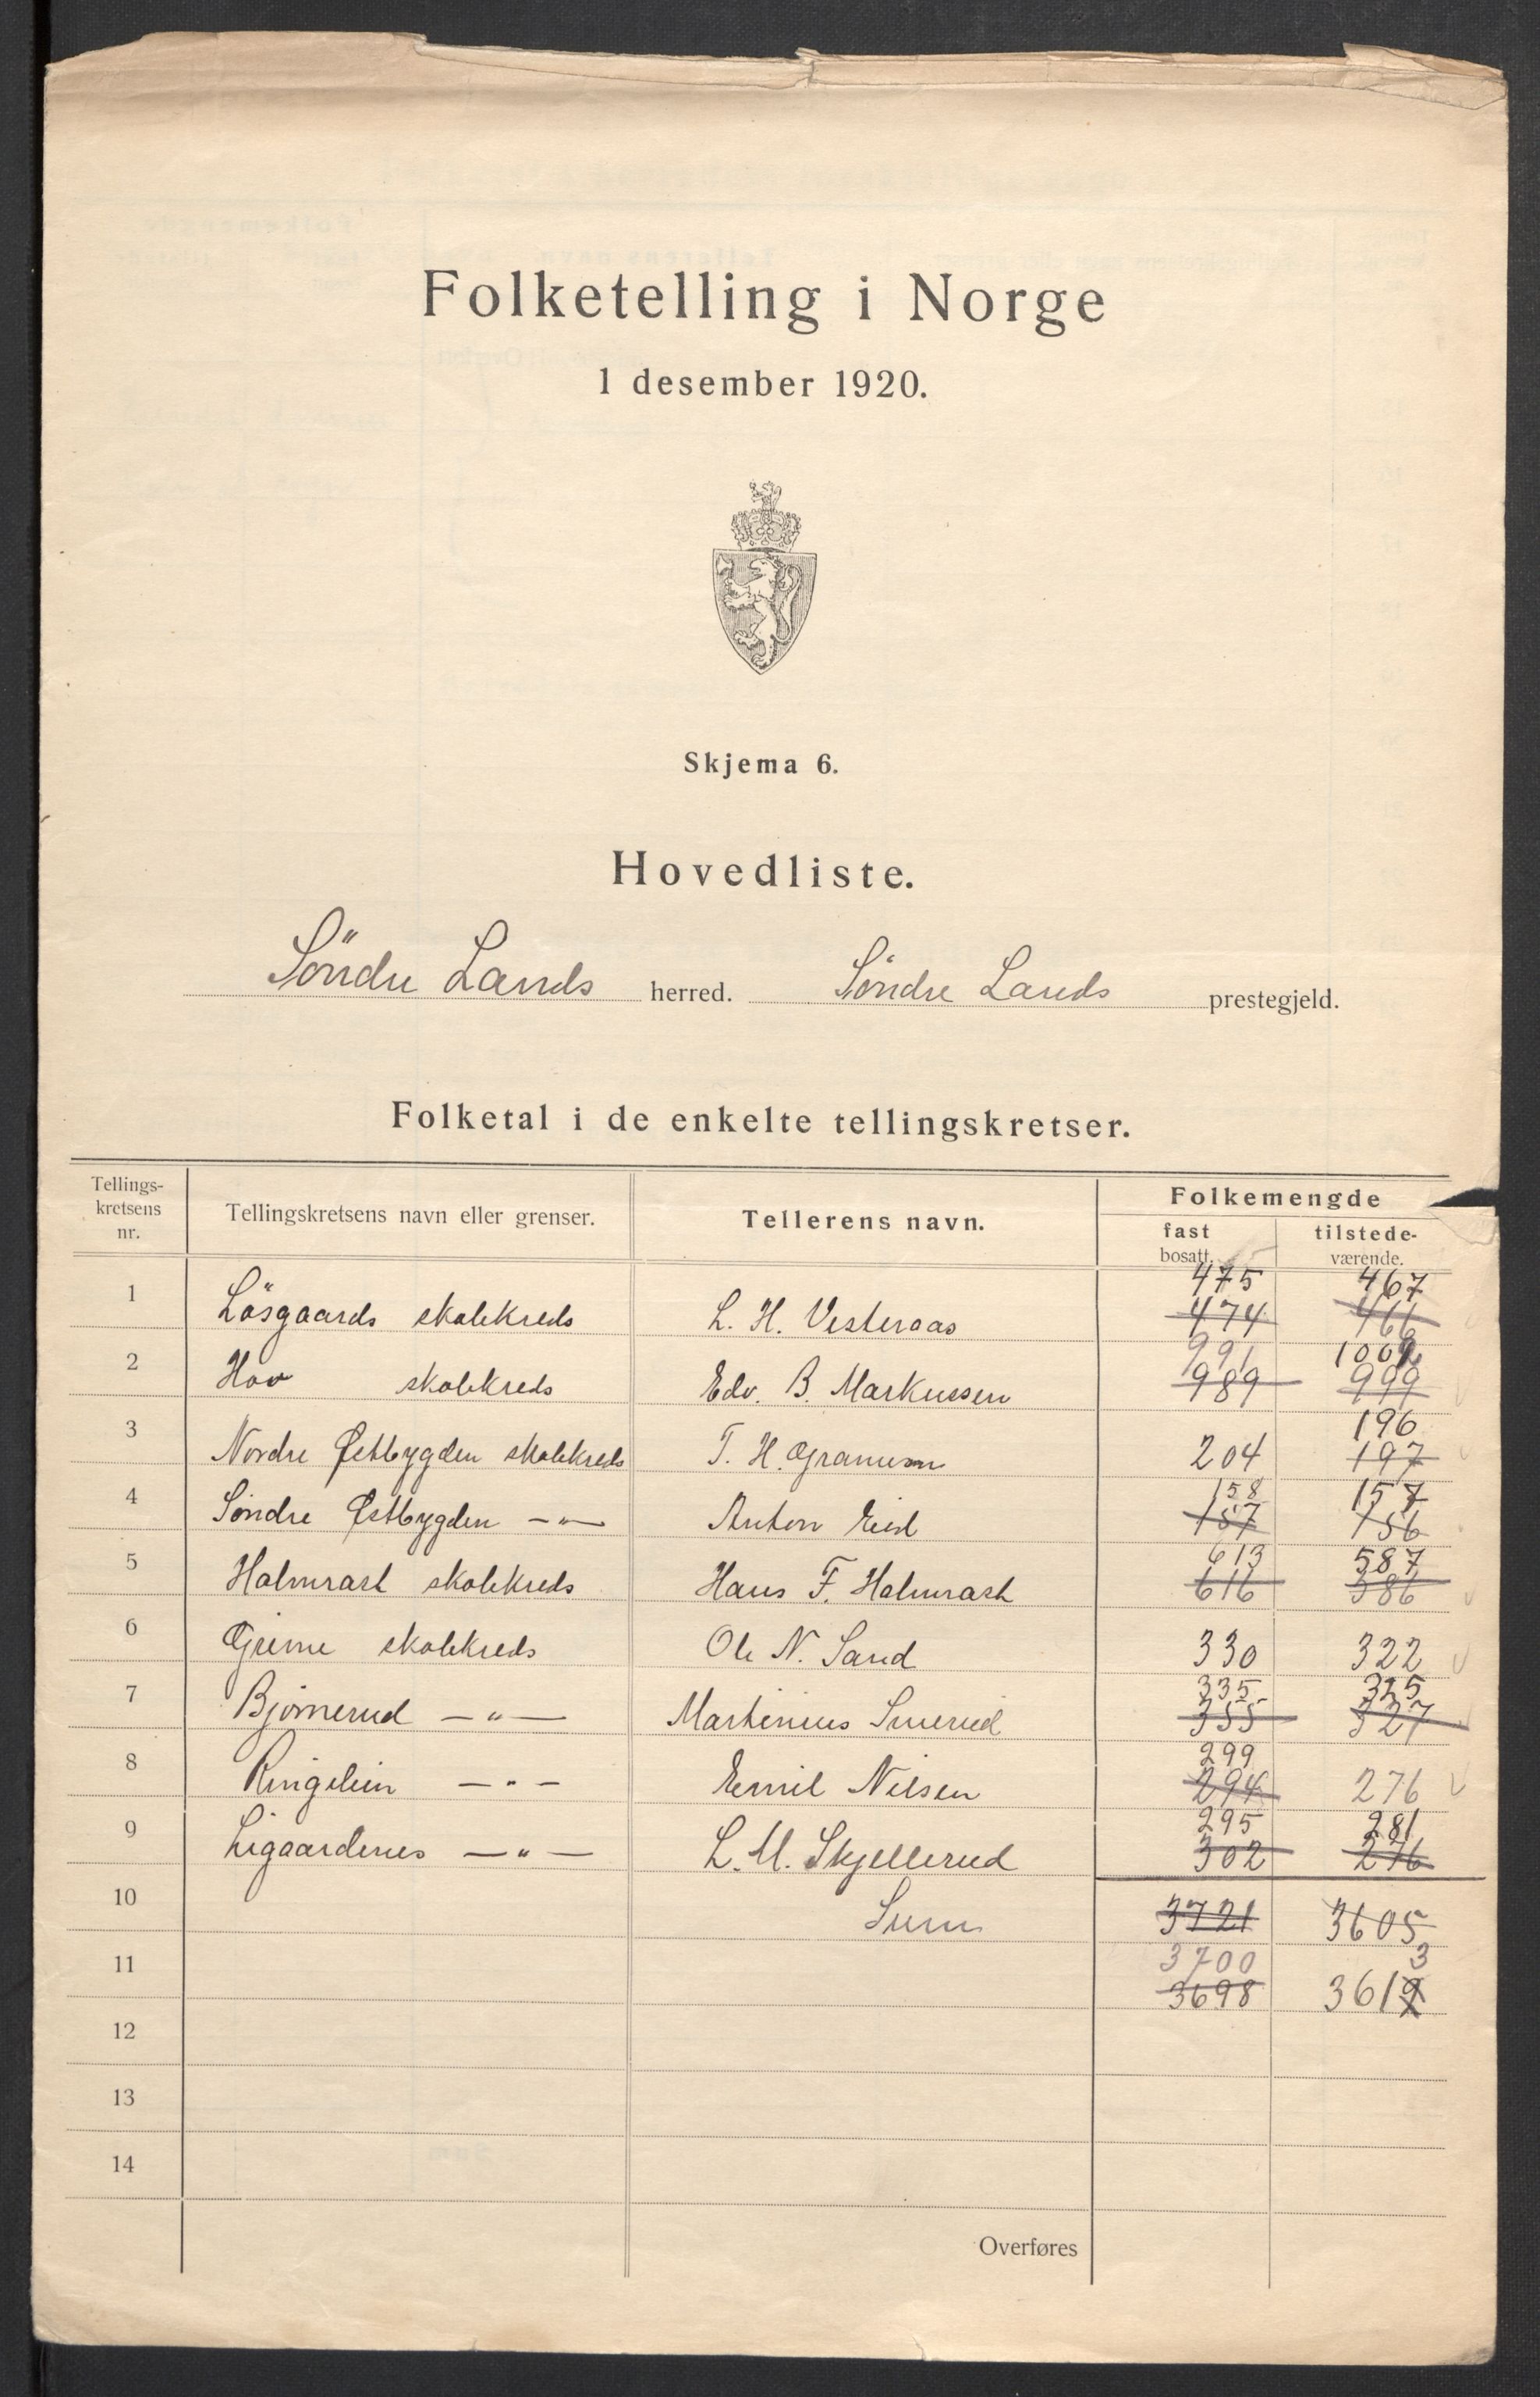 Folketelling i Norge
1 desember 1920.
Skjema 6.
Hovedliste.
Söndre Lands herred. Söndre Lands prestegjeld.
Folketal i de enkelte tellingskretser.
Tellings-kretsens nr. Tellingskretsens navn eller grenser. Tellerens navn. Folkemengde
fast bosatt. tilstede-værende.
475 467
1 Lösgaards skolekreds L. H. Vesteraas 474 466
991 1002
2 Hov skolekreds Edv. B. Markussen 989 999
196
3 Nordre Østbygden skolekreds T. H. 204 197
158 157
4 Söndre Østbygden —"— Anton Eid 157 156
613 587
5 Halmrast skolekreds Hans F. Halmrast 616 586
6 Grime skolekreds Ole N. Sand 330 322
335 325
7 Bjönerud —"— Martinius Smerud 355 327
299
8 Ringelien —"— Emil Nilsen 294 276
295 281
9 Ligaardenes —"— L. M. Skjellerud 302 276
10 Sum 3721 3605
3700 3
11 3698 3612
12
13
14
Overføres